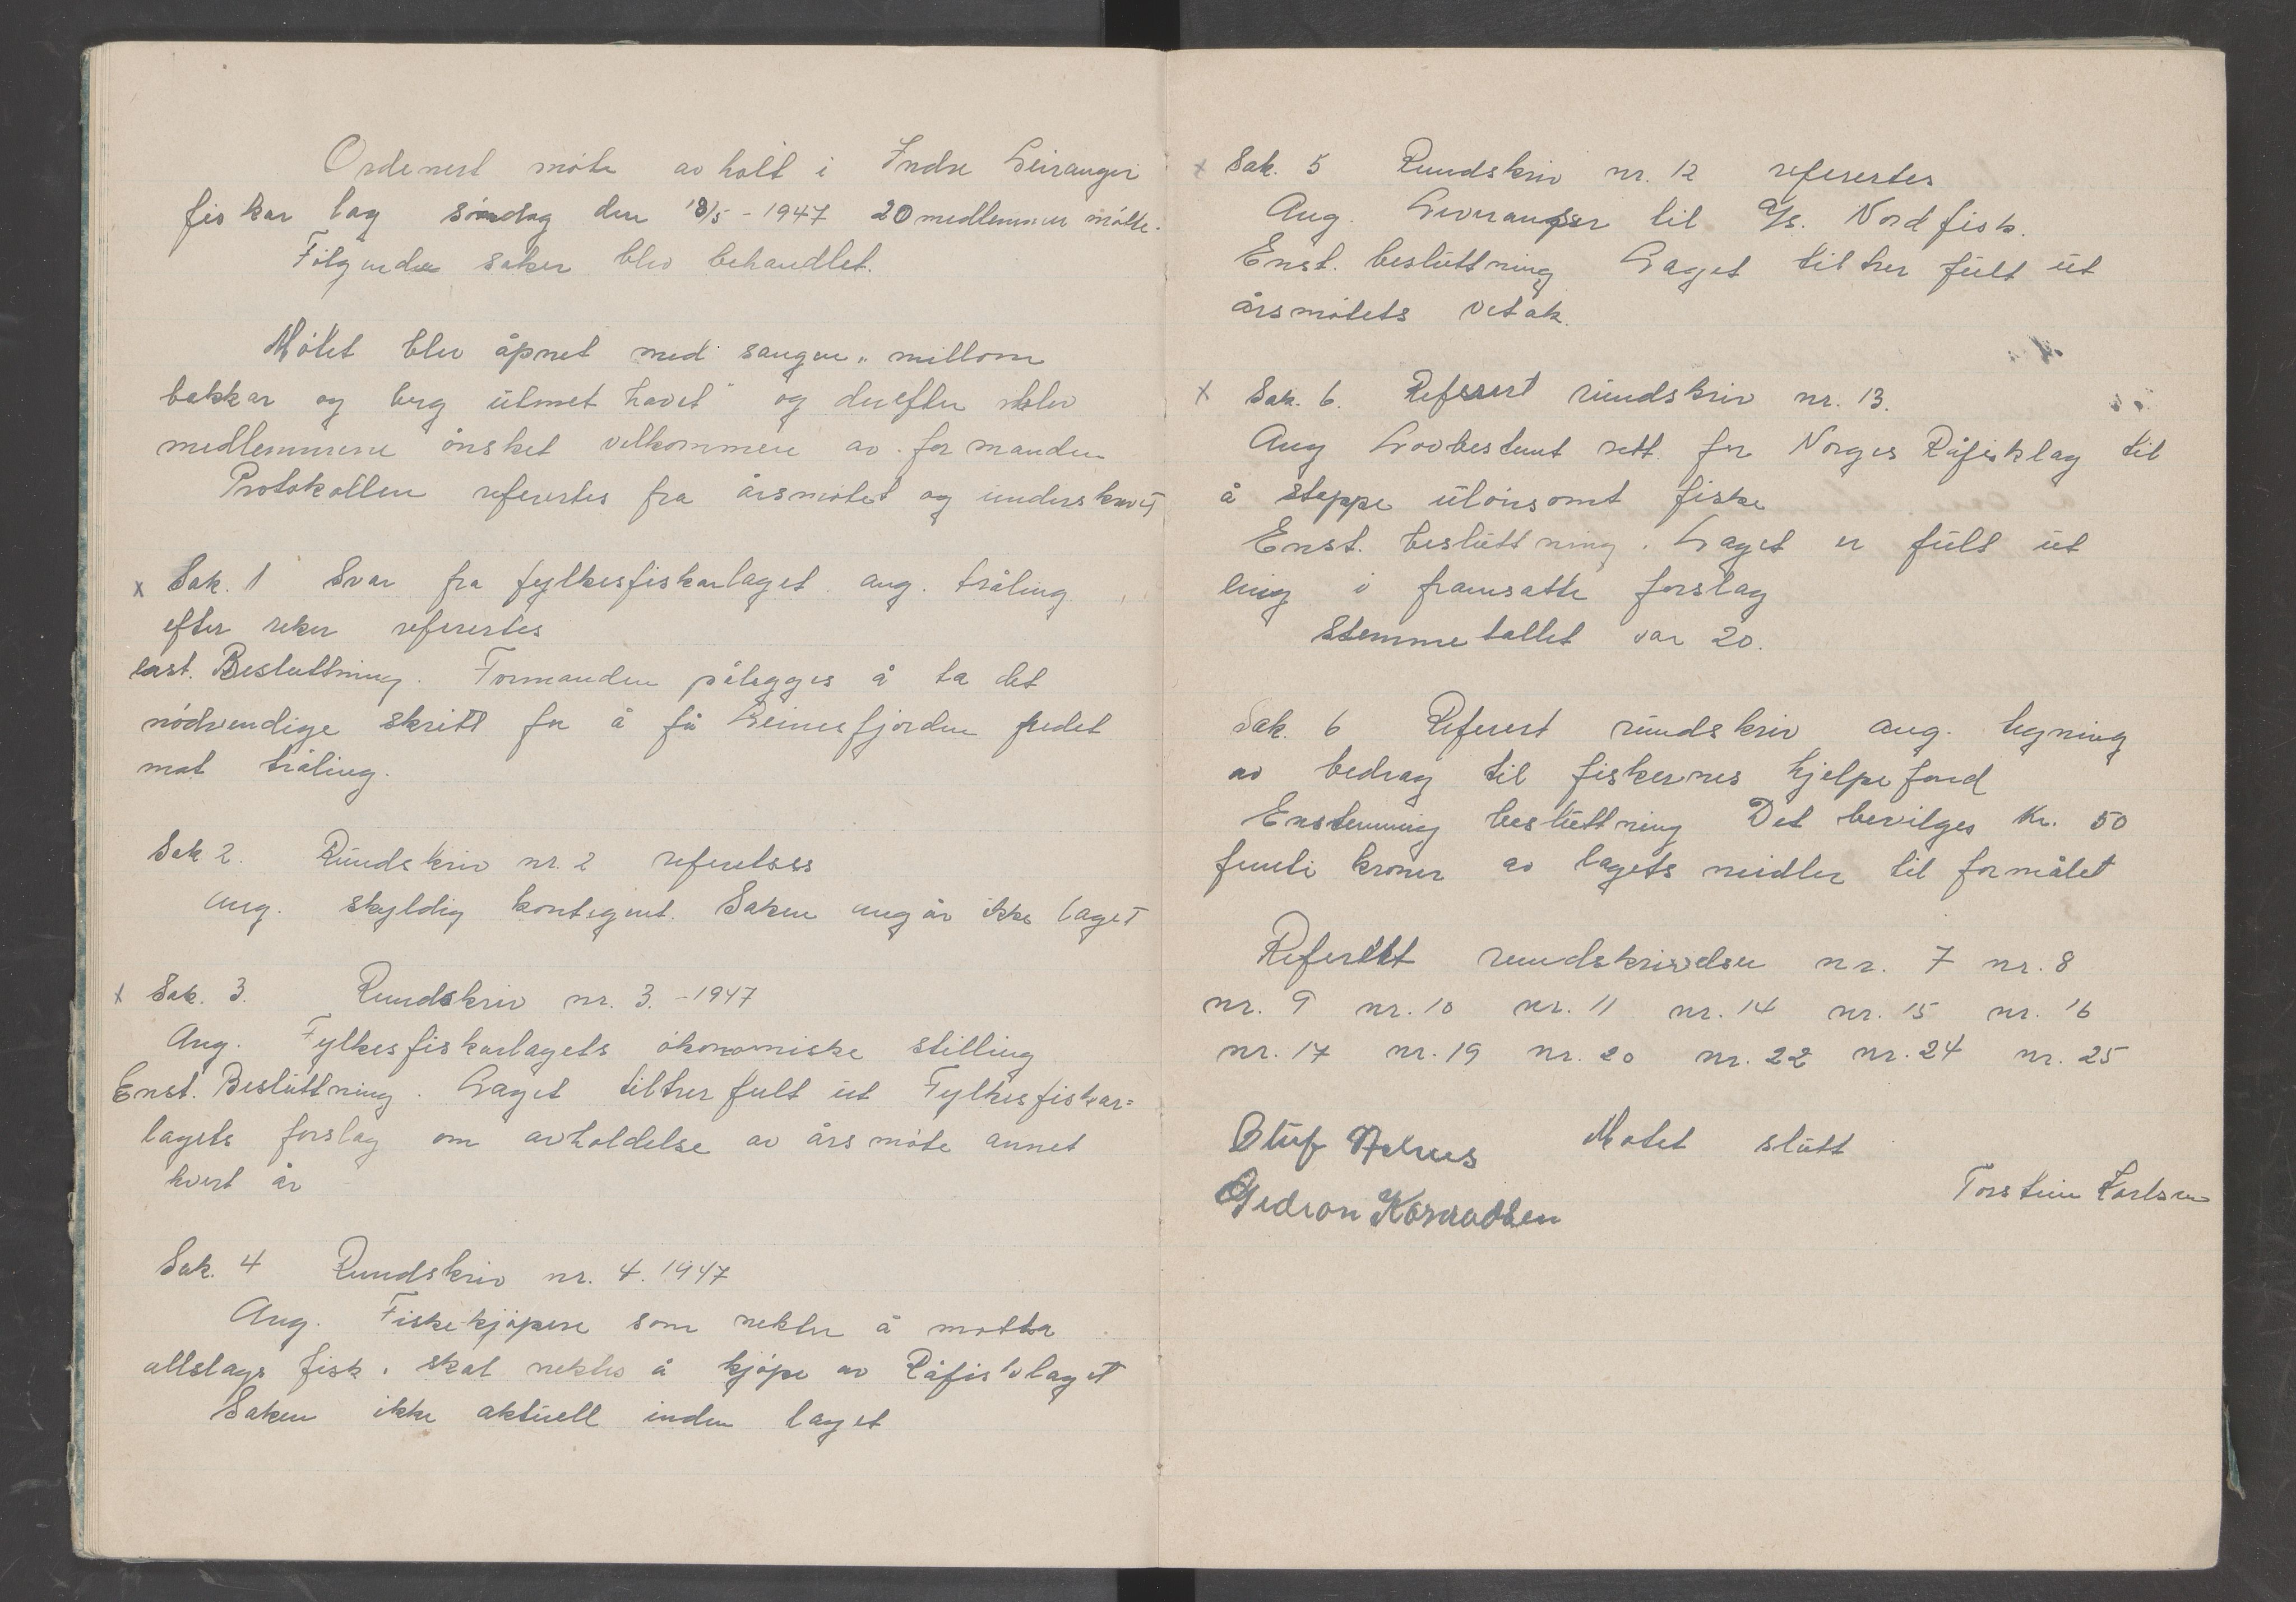 Ordenert möte avholt i Indre Leiranger
fiskar lag söndag den 18/5 - 1947 20 medlemmer mötte.
Fölgende saker blev behandlet.
Mötet blev åpnet med sangen „millom
bakkar og berg utmet havet" og derefter blev
medlemmene önsket velkommen av formanden
Protokollen referertes fra årsmötet og underskrevet
x Sak. 1 Svar fra fylkesfiskarlaget ang. tråling
efter reker referertes
enst. Besluttning. Formanden pålegges å ta det
nödvendige skritt for å få Leinesfjorden fredet
mot tråling.
Sak 2. Rundskriv nr. 2
ang. skyldig kontigent. Saken angår ikke laget
x Sak. 3. Rundskriv nr. 3. - 1947
Ang. Fylkesfiskarlagets ökonomiske stilling
Enst. Besluttning. Laget tiltrer fult ut Fylkesfiskar=
lagets forslag om avholdelse av årsmöte annet
hvert år
Sak. 4 Rundskriv nr. 4. 1947
Ang. Fiskekjöpere som nekter å motta
allslags fisk. skal nektes å kjöpe av Råfisklaget
Saken ikke aktuell inden laget
x Sak. 5 Rundskriv nr. 12 referertes
Ang. Leveranser til A/s. Nordfisk.
Enst. besluttning Laget tiltrer fult ut
årsmötets vetak.
x Sak. 6. Referert rundskriv nr. 13.
Ang Lovbestemt rett for Norges Råfisklag til
å stoppe ulönsomt fiske
Enst. besluttning. Laget er fult ut
enig i framsatte forslag
Stemmetallet var 20.
Sak. 6 Referert rundskriv ang. tegning
av bedrag til fiskernes hjelpefond
Enstemmig besluttning Det bevilges kr. 50
femti kroner av lagets midler til formålet
Referert rundskrivelser nr. 7 nr. 8
nr. 9 nr. 10 nr. 11 nr. 14 nr. 15 nr. 16
nr. 17 nr. 19 nr. 20 nr. 22 nr. 24 nr. 25
Oluf Möte slutt
Gedion Konradsen Torstein Karlsen